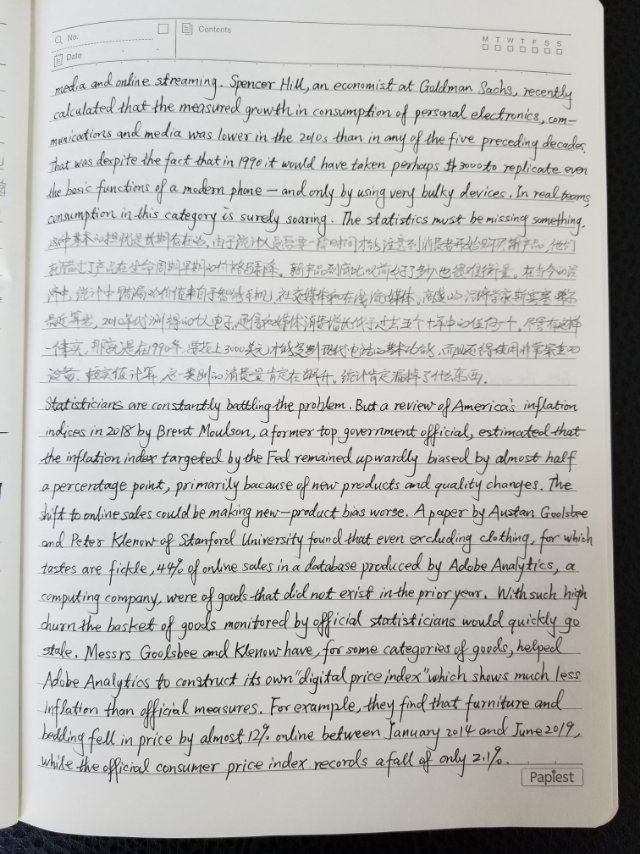 No.
Contents
Date
M T W T F S S
media and online streaming. Spencer Hill, an economist at Goldman Sachs, recently
calculated that the measured growth in consumption of personal electronics, com-
munications and media was lower in the 2010s than in any of the five preceding decades.
That was despite the fact that in 1990 it would have taken perhaps $3000 to replicate even
the basic functions of a modern phone — and only by using very bulky devices. In real teams,
consumption in this category is surely soaring. The statistics must be missing something.
由于统计人员需要一段时间才能注意到消费者开始购买新产品，他们
错过了产品在生命周期早期的价格下降。
济中，统计中错漏的价值来自于智能手机，社交媒体和在线流媒体。高盛的经济学家斯宾塞·希尔
最近算出，2010年代测得的个人电子，通信和媒体消费增长低于过去五个十年中的任何一个。尽管有这样
一件实，那就是在1990年，要花上3000美元才能复制现代电话的基本功能，而且还得使用非常笨重的
设备。按实值计算，这一类别的消费量肯定在飙升。统计肯定漏掉了什么东西。
Statisticians are constantly battling the problem. But a review of America's inflation
indices in 2018 by Brent Moulson, a former top government official, estimated that
the inflation index targeted by the Fed remained upwardly biased by almost half
a percentage point, primarily bacause of new products and quality changes. The
shift to online sales could be making new-product bias worse. A paper by Austan Goolsbee
and Peter Klenow of Stanford University found that even excluding clothing, for which
tastes are fickle, 44% of online sales in a database produced by Adobe Analytics, a
computing company, were of goods that did not exist in the prior year. With such high
churn the basket of goods monitored by official statisticians would quickly go
stale. Messrs Goolsbee and Klenow have, for some categories of goods, helped
Adobe Analytics to construct its own "digital price index" which shows much less
inflation than official measures. For example, they find that furniture and
bedding fell in price by almost 12% online between January 2014 and June 2019,
while the official consumer price index records a fall of only 2.1%.
Papiest